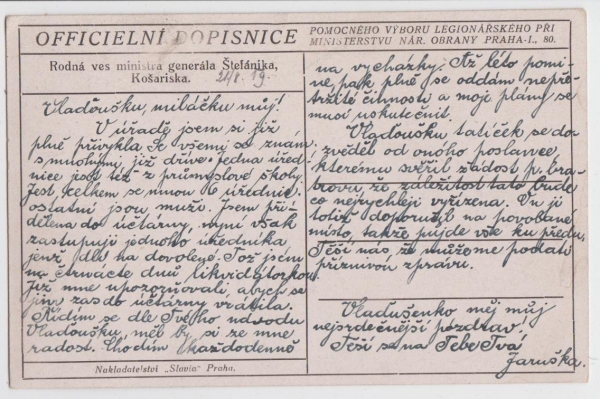 OFFICIELNÍ DOPISNICE
POMOCNÉHO VÝBORU LEGIONÁŘSKÉHO PŘI
MINISTERSTVU NÁR. OBRANY PRAHA-I., 80.
Rodná ves ministra generála Štefánika,
Košariska. 21/8. 19.
Vlaďoušku, miláčku můj!
V úřadě jsem si již
plně přivykla. Se všemi se znám,
s mnohými již dříve. Jedna úřed-
nice jest též z průmyslové školy.
Jest celkem se mnou 6 úřednic,
ostatní jsou muži. Jsem při-
dělena do účtárny, nyní však
zastupuji jednoho úředníka
jenž dlí na dovolené. Též jsem
na čtrnácte dnů likvidátorkou.
Již mne upozorňovali, abych se
jim zas do účtárny vrátila.
Řídím se dle Tvého návodu
Vlaďoušku, měl by si ze mne
radost. Chodím každodenně
Nakladatelství „Slavia" Praha.
na vycházky. Až léto pomi-
ne, pak plně se oddám nepře-
tržité činnosti a moje plány se
musí uskutečnit.
Vlaďoušku tatíček se do-
zvěděl od onoho poslance,
kterému svěřil žádost p. bra-
trovu, že záležitost tato bude
co nejrychleji vyřízena. On je
totiž doporučil na povolané
místo, takže půjde vše ku předu.
Těší nás, že můžeme podati
příznivou zprávu.
Vlaďušenko měj můj
nejsrdečnější pozdrav!
Těší se na Tebe Tvá
Jaruška.